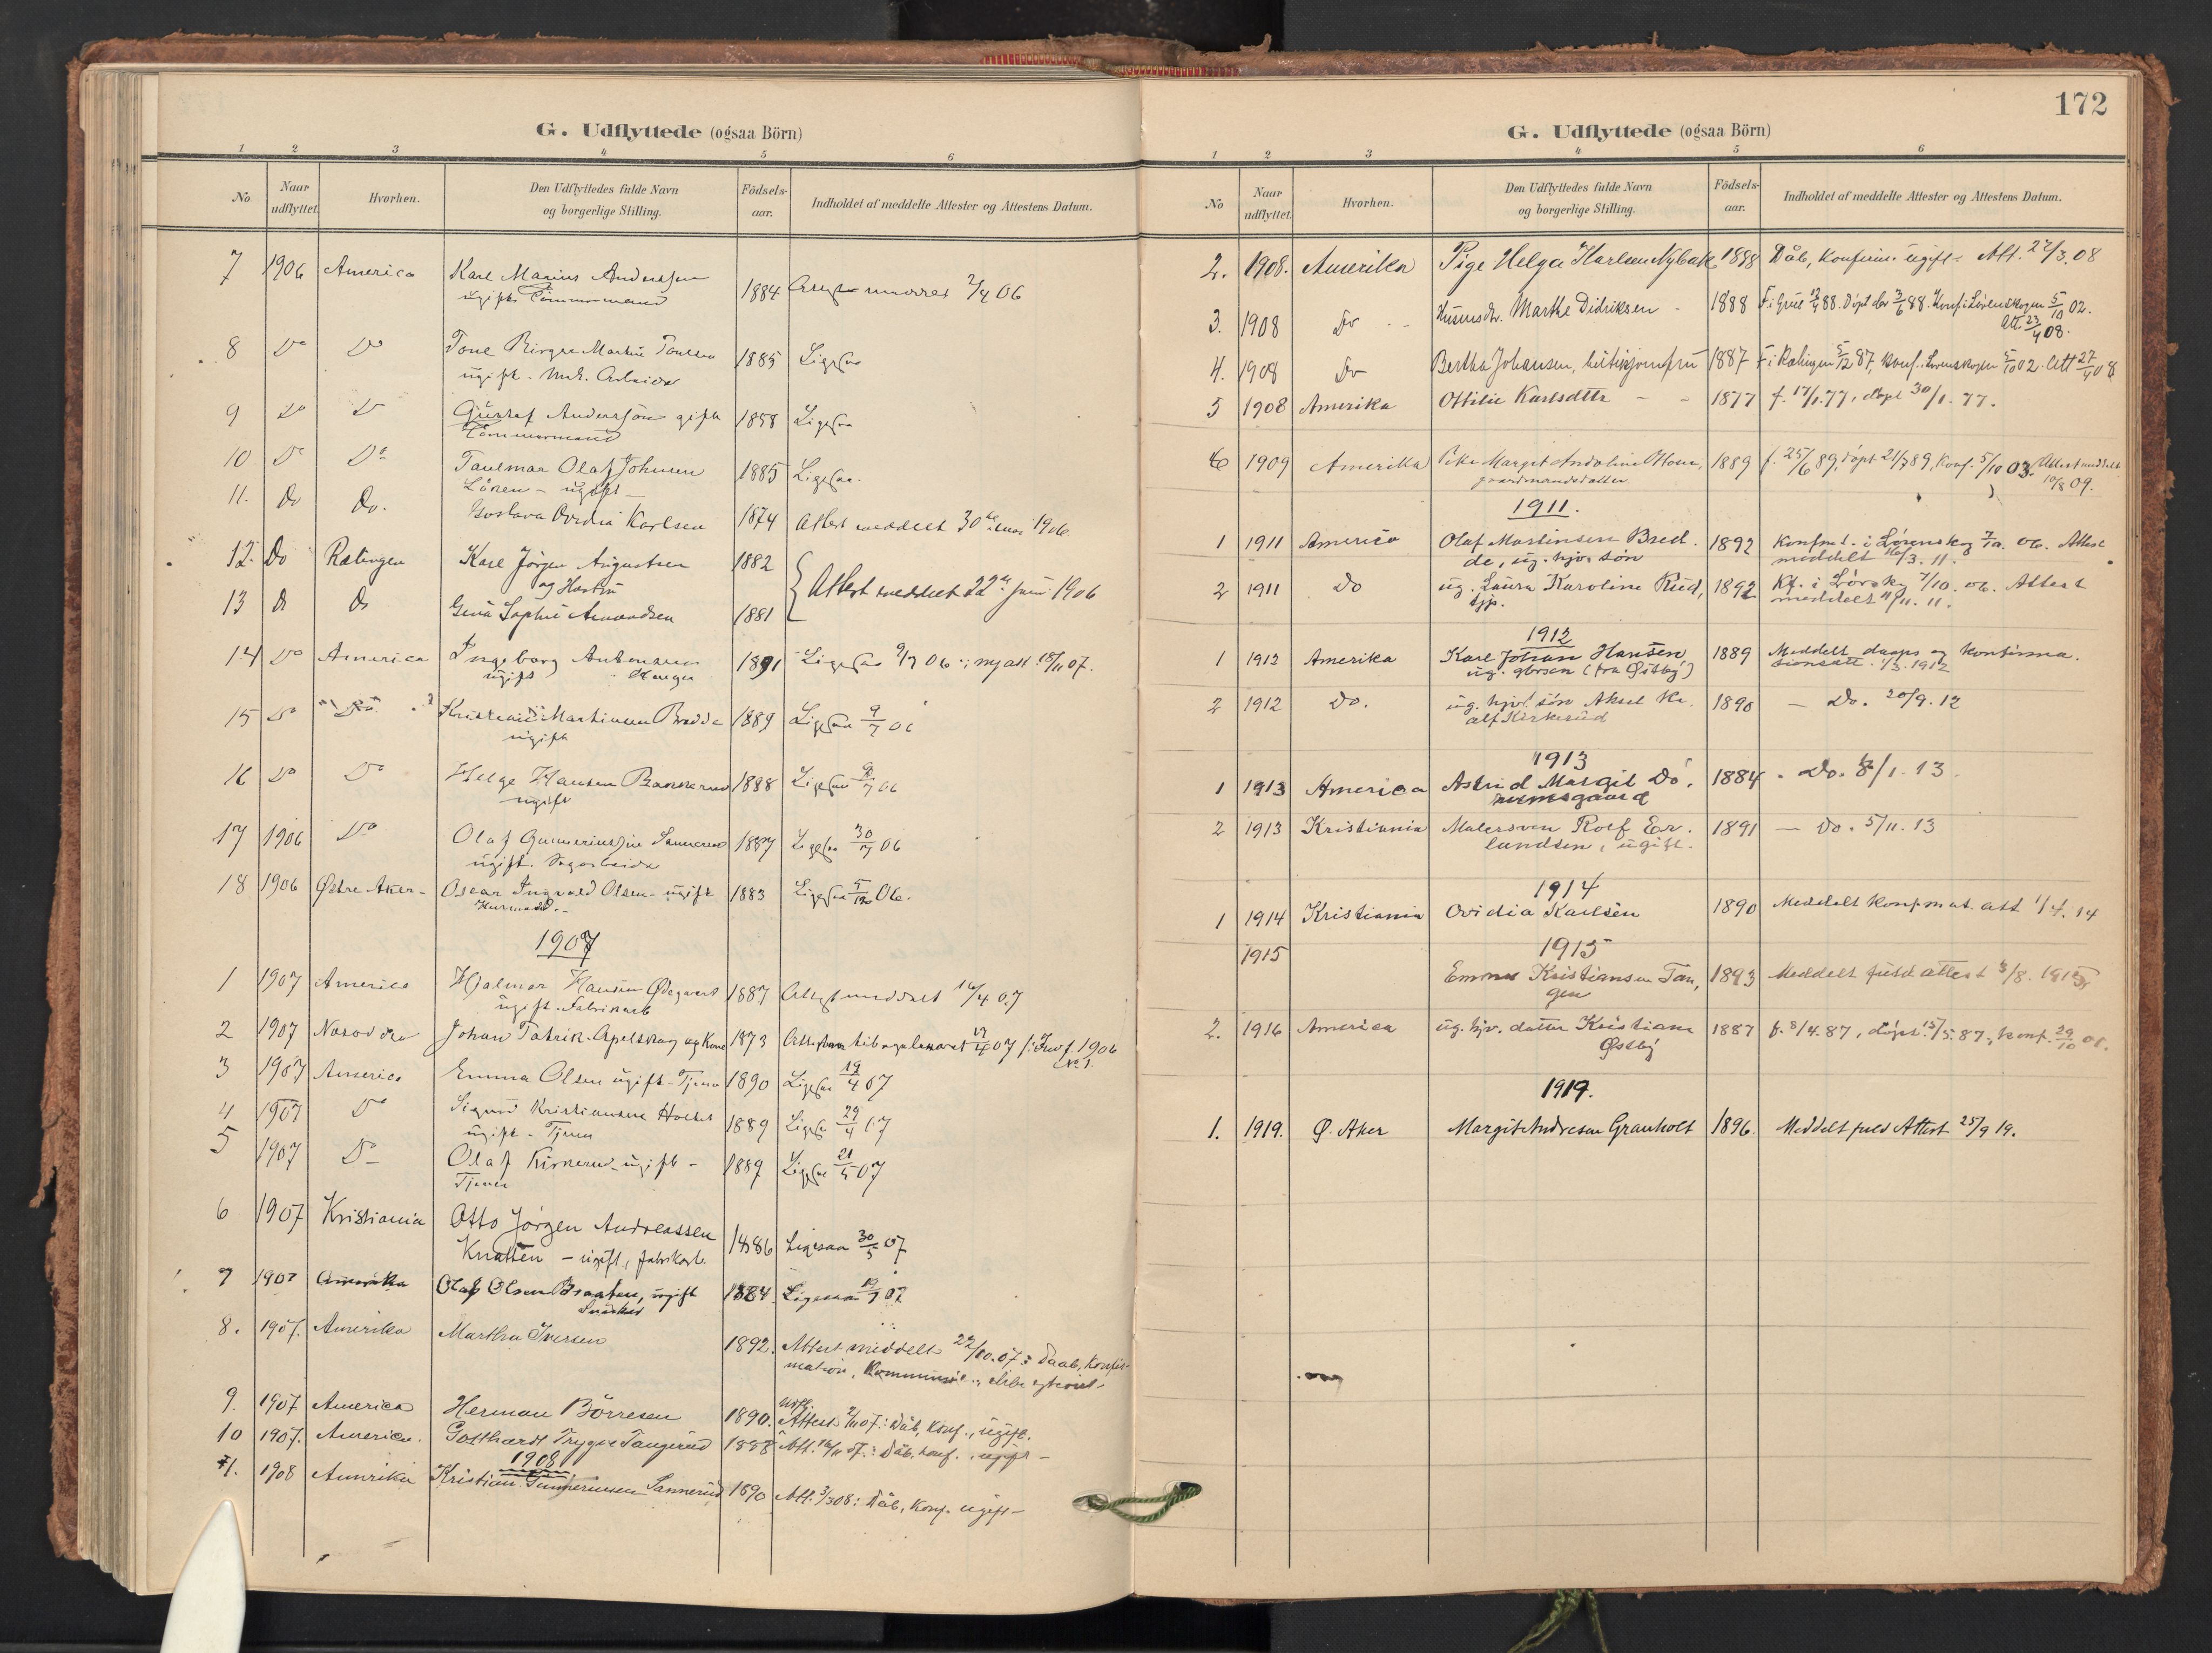 G. Udflyttede (ogsaa Börn)
1 2 3 4 5 6
No. Naar udflyttet. Hvorhen. Den Udflyttedes fulde Navn og borgerlige Stilling. Födsels-aar. Indholdet af meddelte Attester og Attestens Datum.
7 1906 America Karl Marius Andersen 1884 Attest 2/4 06
ugift Tömmermand
8 Do Do 1885 Ligesaa
ugift.
9 Do Do Gustaf Anderssön gift 1858 Ligesaa
Tömmermand
10 Do Do Olaf Johnsen 1885 Ligesaa.
ugift
11. Do Do. Gustava Ovidia Karlsen 1874 Attest meddelt 30te mai 1906
12. Do Rælingen Karl Jörgen Augustsen 1882
og Hustru
Attest meddelt 22de juni 1906
13 Do Do Gina Sophie Amundsen 1881
14 Do America Ingeborg Antonsen 1891 Ligesaa 9/7 06; ny att. 18/11 07.
ugift
15 Do Do Kristian Martinsen Bredde 1889 Ligesaa 9/7 06
ugift
16 Do Do Helge Hansen 1888 Ligesaa 9/7 06
ugift
17 1906 Do Olaf Sannerud 1887 Ligesaa 30/7 06
ugift. Sagarbeider
18 1906 Østre Aker Oscar Ingvald Olsen - ugift 1883 Ligesaa 5/12 06.
1907
1 1907 America Hjalmar Hansen Ødegaard 1887 Attest meddelt 16/4 07
ugift. Fabrikarb
2 1907 Johan Patrik Apelskog og Kone 1873 07 1906
No 1.
3 1907 America Emma Olsen ugift - Tjener 1890 Ligesaa 19/4 07
4 1907 Do Sigurd Kristiansen 1889 Ligesaa 29/4 07
ugift - Tjener
5 1907 Do Olaf ugift - 1889 Ligesaa 21/5 07
Tjener
6 1907 Kristiania Otto Jörgen Andreassen 1886 Ligesaa 30/5 07
Knatten - ugift, fabrikarb.
7 1907 Amerika Olaf Olsen Braaten, ugift 1884 Ligesaa 07
Snedker
8. 1907. Amerika Martha Iversen 1892. Attest meddelt 22/10.07: Daab, Konfir-
mation,
9. 1907 America Herman Börresen 1890. Attest 2/11 07: Dåb, Konf., ugift.
10 1907. America. Gotthardt Trygve Tangerud 1888 Att. 16/11 07: Dåb, konf., ugift -
1908
1. 1908 Amerika Kristian Gunneriusen Sannerud 1890 Att. 3/3 08: Dåb, Konf. ugift -
172
G. Udflyttede (ogsaa Börn)
1 2 3 4 5 6
No Naar udflyttet. Hvorhen. Den Udflyttedes fulde Navn og borgerlige Stilling. Födsels-aar. Indholdet af meddelte Attester og Attestens Datum.
2. 1908. Amerika Pige Helga Karlsen Nybak 1888 Dåb, Konfirm. ugift - Att. 27/3.08
3. 1908 Do Marthe Didriksen 1888 F. i 12/4 88. Döpt 3/6 88. Konf. i Lörenskogen 5/10 02.
Att. 23/4 08.
4. 1908 Do Bertha Johansen, butikjomfru 1887 F. i Rælingen 5/12 87, Konf. i Lörenskogen 5/10 02. Att 27/4 08
5 1908 Amerika Ottilie Karlsdttr 1877 f. 17/1.77, döpt 30/1.77.
6 1909 Amerika Pike Margit Andoline Ottosen, 1889 f. 25/6 89, döpt 21/7 89, Konf. 5/10 03. Attest meddelt
gaardmandsdatter 10/8 09.
1911.
1 1911 America Olaf Martinsen Bred- 1892 Konfmt. i Lörenskog 7/10. 06. Attest
de, ug. hjv. sön meddelt 16/3. 11.
2 1911 Do ug. Laura Karoline Rud, 1892 Kf. i Lörskg 7/10. 06. Attest
tjp. meddelt 11/11. 11.
1912
1 1912 Amerika Karl Johan Hansen 1889 Meddelt daaps og konfirma-
ug. gbrsøn (fra Østby) tionsatt. 1/3. 1912
2 1912 Do. ug. hjv. sön Aksel 1890 - Do. 20/9. 12
Kirkerud
1913
1 1913 America Astrid Margit Dö- 1884 - Do. 8/1. 13
2 1913 Kristiania Malersven Rolf Er- 1891 - Do. 5/11. 13
landsen, ugift.
1914
1 1914 Kristiania Ovidia Karlsen 1890 Meddelt konfmat. att 1/4. 14
1915 1915
Emma Kristiansen Tan- 1893 Meddelt fuld attest 3/8. 1915
gen
2. 1916 America ug. hjv. datter Kristiane 1887 f. 8/4. 87, döpt. 15/5. 87, konf. 29/10 01.
Østby
1919.
1. 1919. Ø. Aker Margit Andresen Granholt 1896. Meddelt fuld Attest 25/9 19.